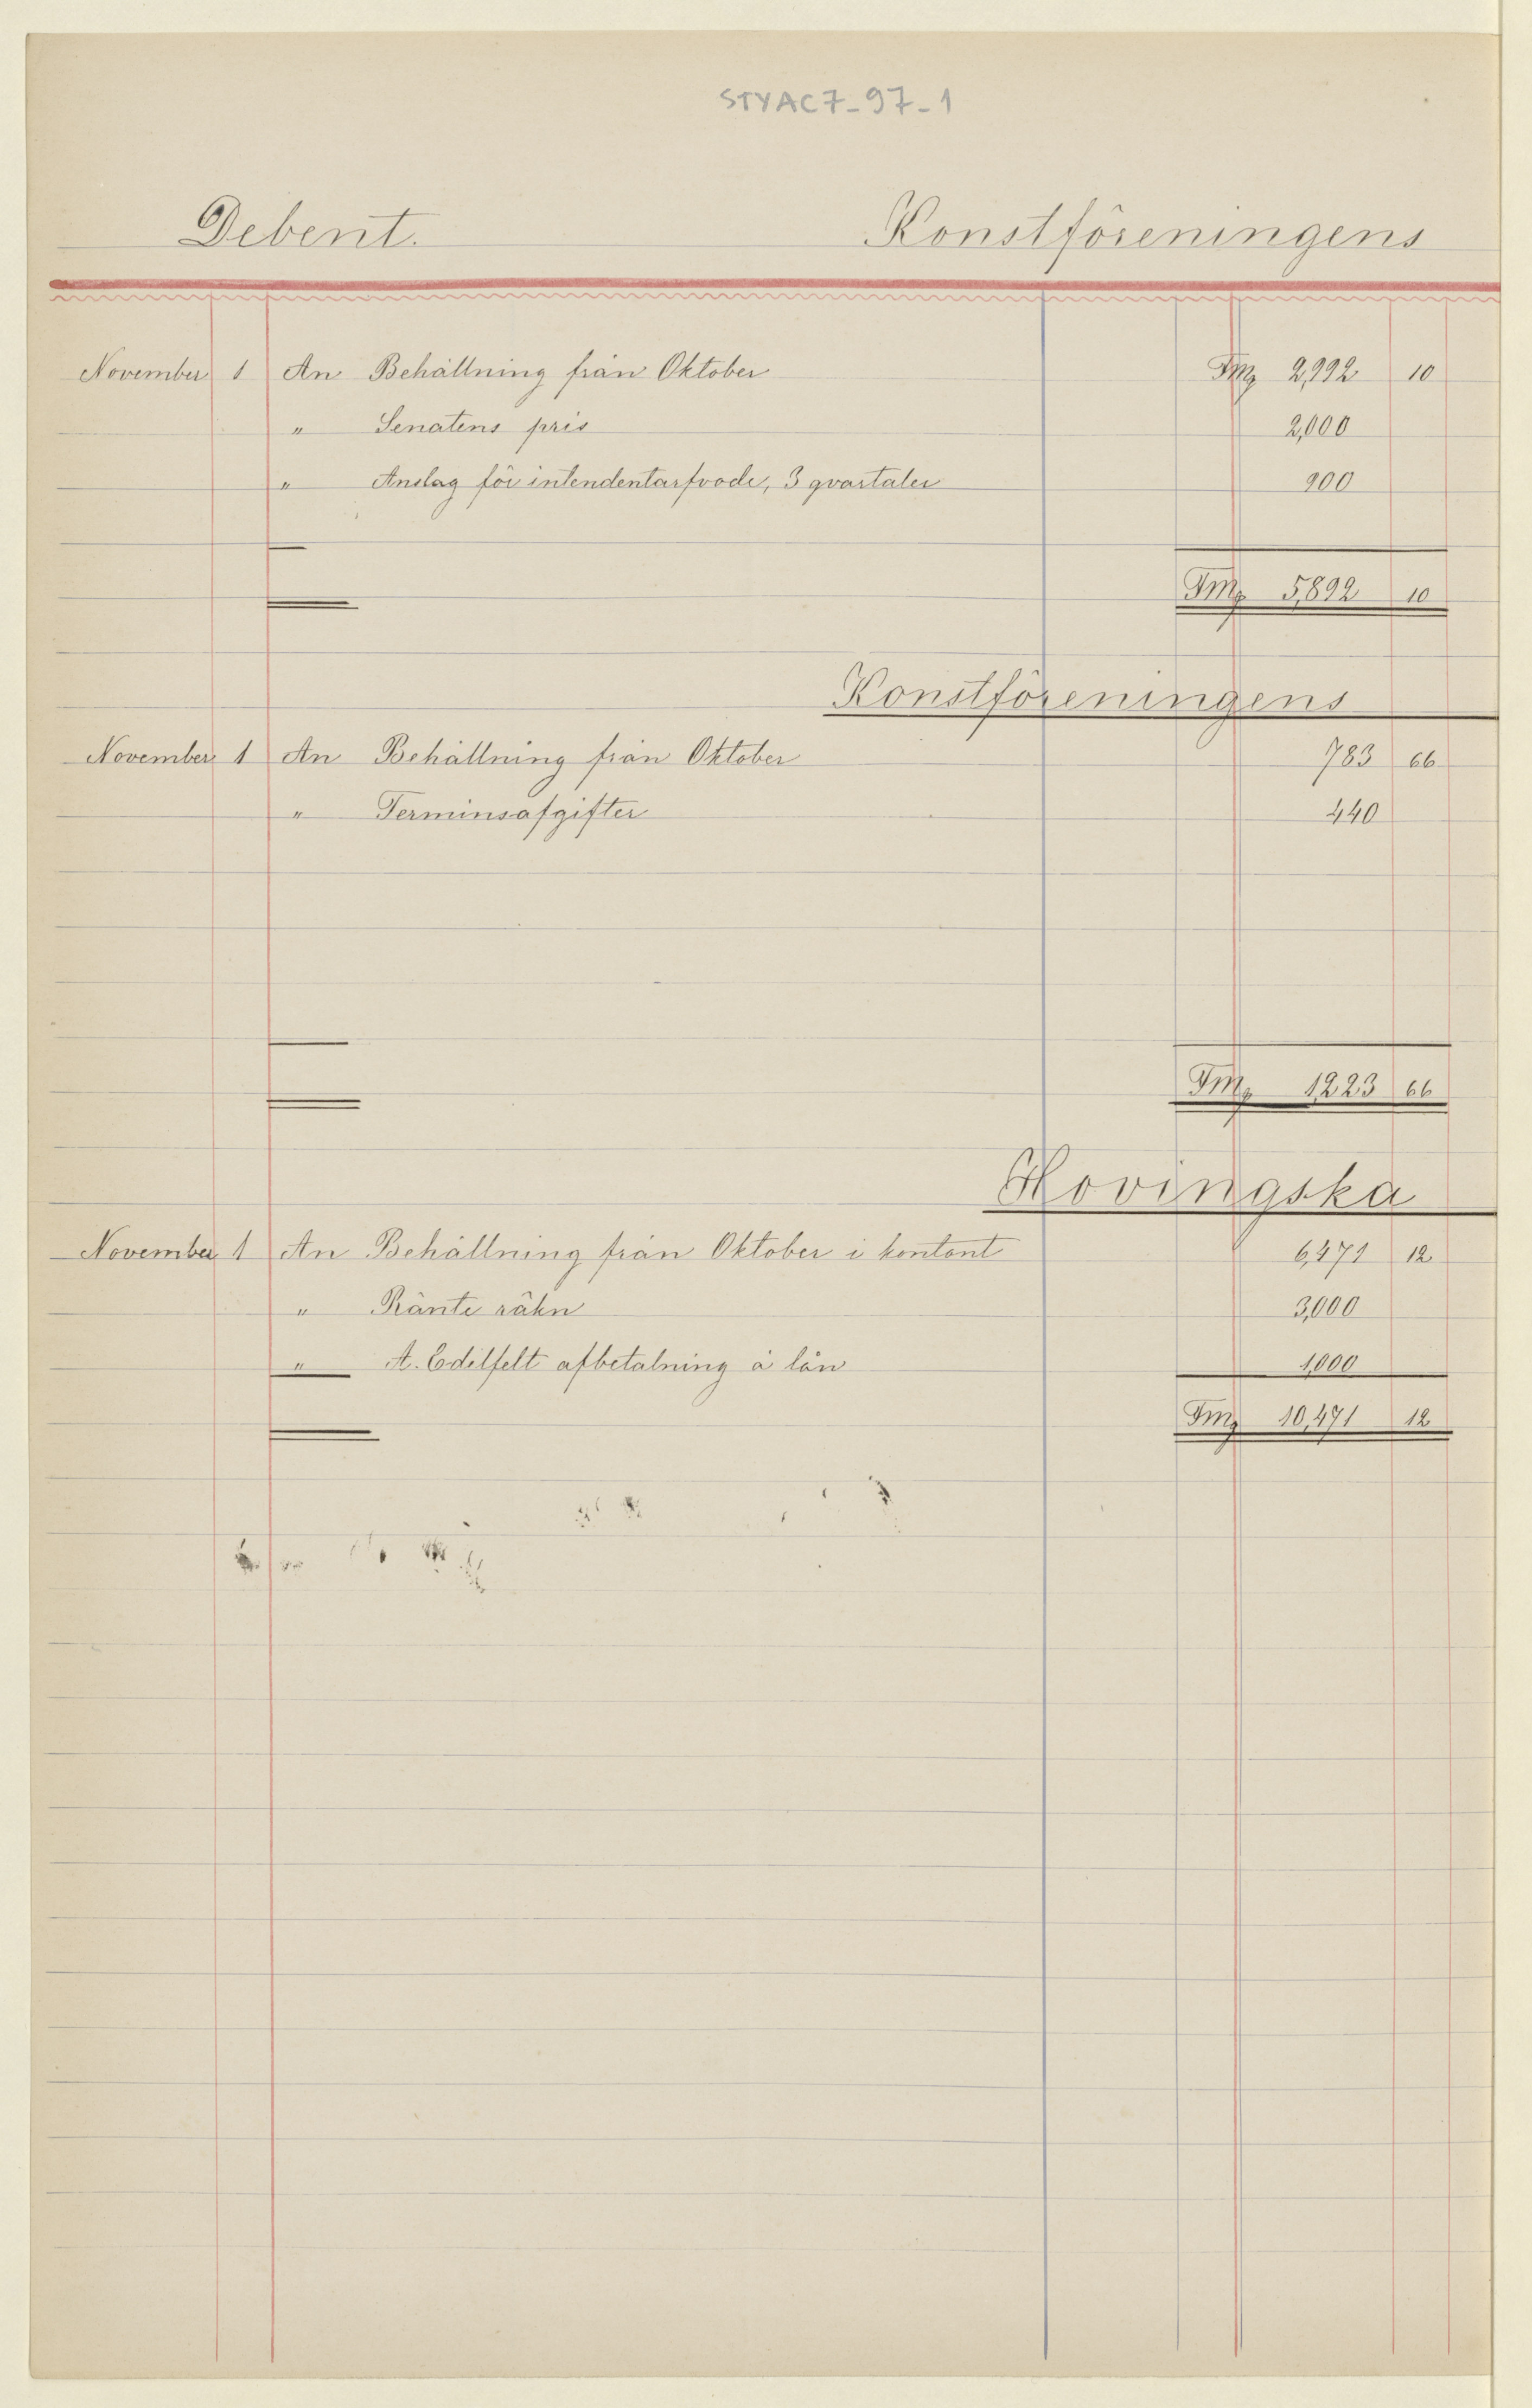 STYAC7-97-1
Debent. Konstföreningens
November 1 An Behållning från Oktober Fmk 2,992 10
" Senatens pris 2,000
" Anslag för intendentarfvode, 3 qvartaler 900
Fmk 5,892 10
Konstföreningens
November 1 An Behållning från Oktober 783 66
" Terminsafgifter 440
Fmk 1,223 66
Hovingska
November 1 An Behållning från Oktober i kontant 6,471 12
" Ränte räkn 3,000
" A. Edelfelt afbetalning å lån 1,000
Fmk 10,471 12